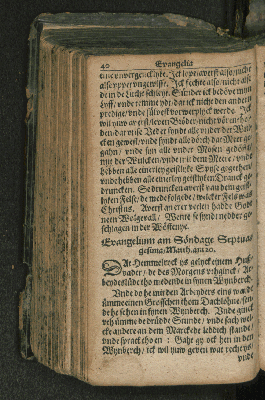 40 Euangelia
alse vppet vngewisse. Ick fechte also/ nicht alse
de in de Lucht schleyt. Sünder ick bedöve mynn
Lyff/ vnde temme ydt/ dat ick nicht den andern
predige/ vnde süluest vorwerplyck werde. Ick
wil yuw auerst/ leuen Bröder/ nicht vorentho-
den/ dat vnse Veder syndt alle vnder der Wul-
cken gewest/ vnde synde alle dörch dat Meer ge-
gahn/ vnde sin alle vnder Mosen gedöfft/
mit der Wulcken/ vnde mit dem Meere/ vnde
hebben alle einerley geistlyke Spyse gegeten/
vnde hebben alle einerley geistlyken Dranck ge-
druncken. Se druncken auerst van dem geist-
lyken Felse/ de mede folgede/ welcker Fels was
Christus. Auerst an erer velen hadde Godt
nenn Wolgeuall/ Wente se synd nedder ge-
schlagen in der Wöstenye.
Euangelium am Söndage Septua-
gesima/ Matth. am 20.
DAt Hemmelrick ys gelyck einem Huß-
vader/ de des Morgens vthginck/ Ar-
beydeslüde tho medende in synen Wynberch.
Vnde do he mit den Arbeyders eins wardt
ümme einen Grosschen thom Dachlohne/ sen-
de he se hen in synen Wynberch. Vnde ginck
vth ümme de drüdde Stunde/ vnde sach wel-
cke andere an dem Marckede leddich stande/
vnde sprack tho en: Gaht gy ock hen in den
Wynberch/ ick wil yuw geuen wat recht ys/
vnde